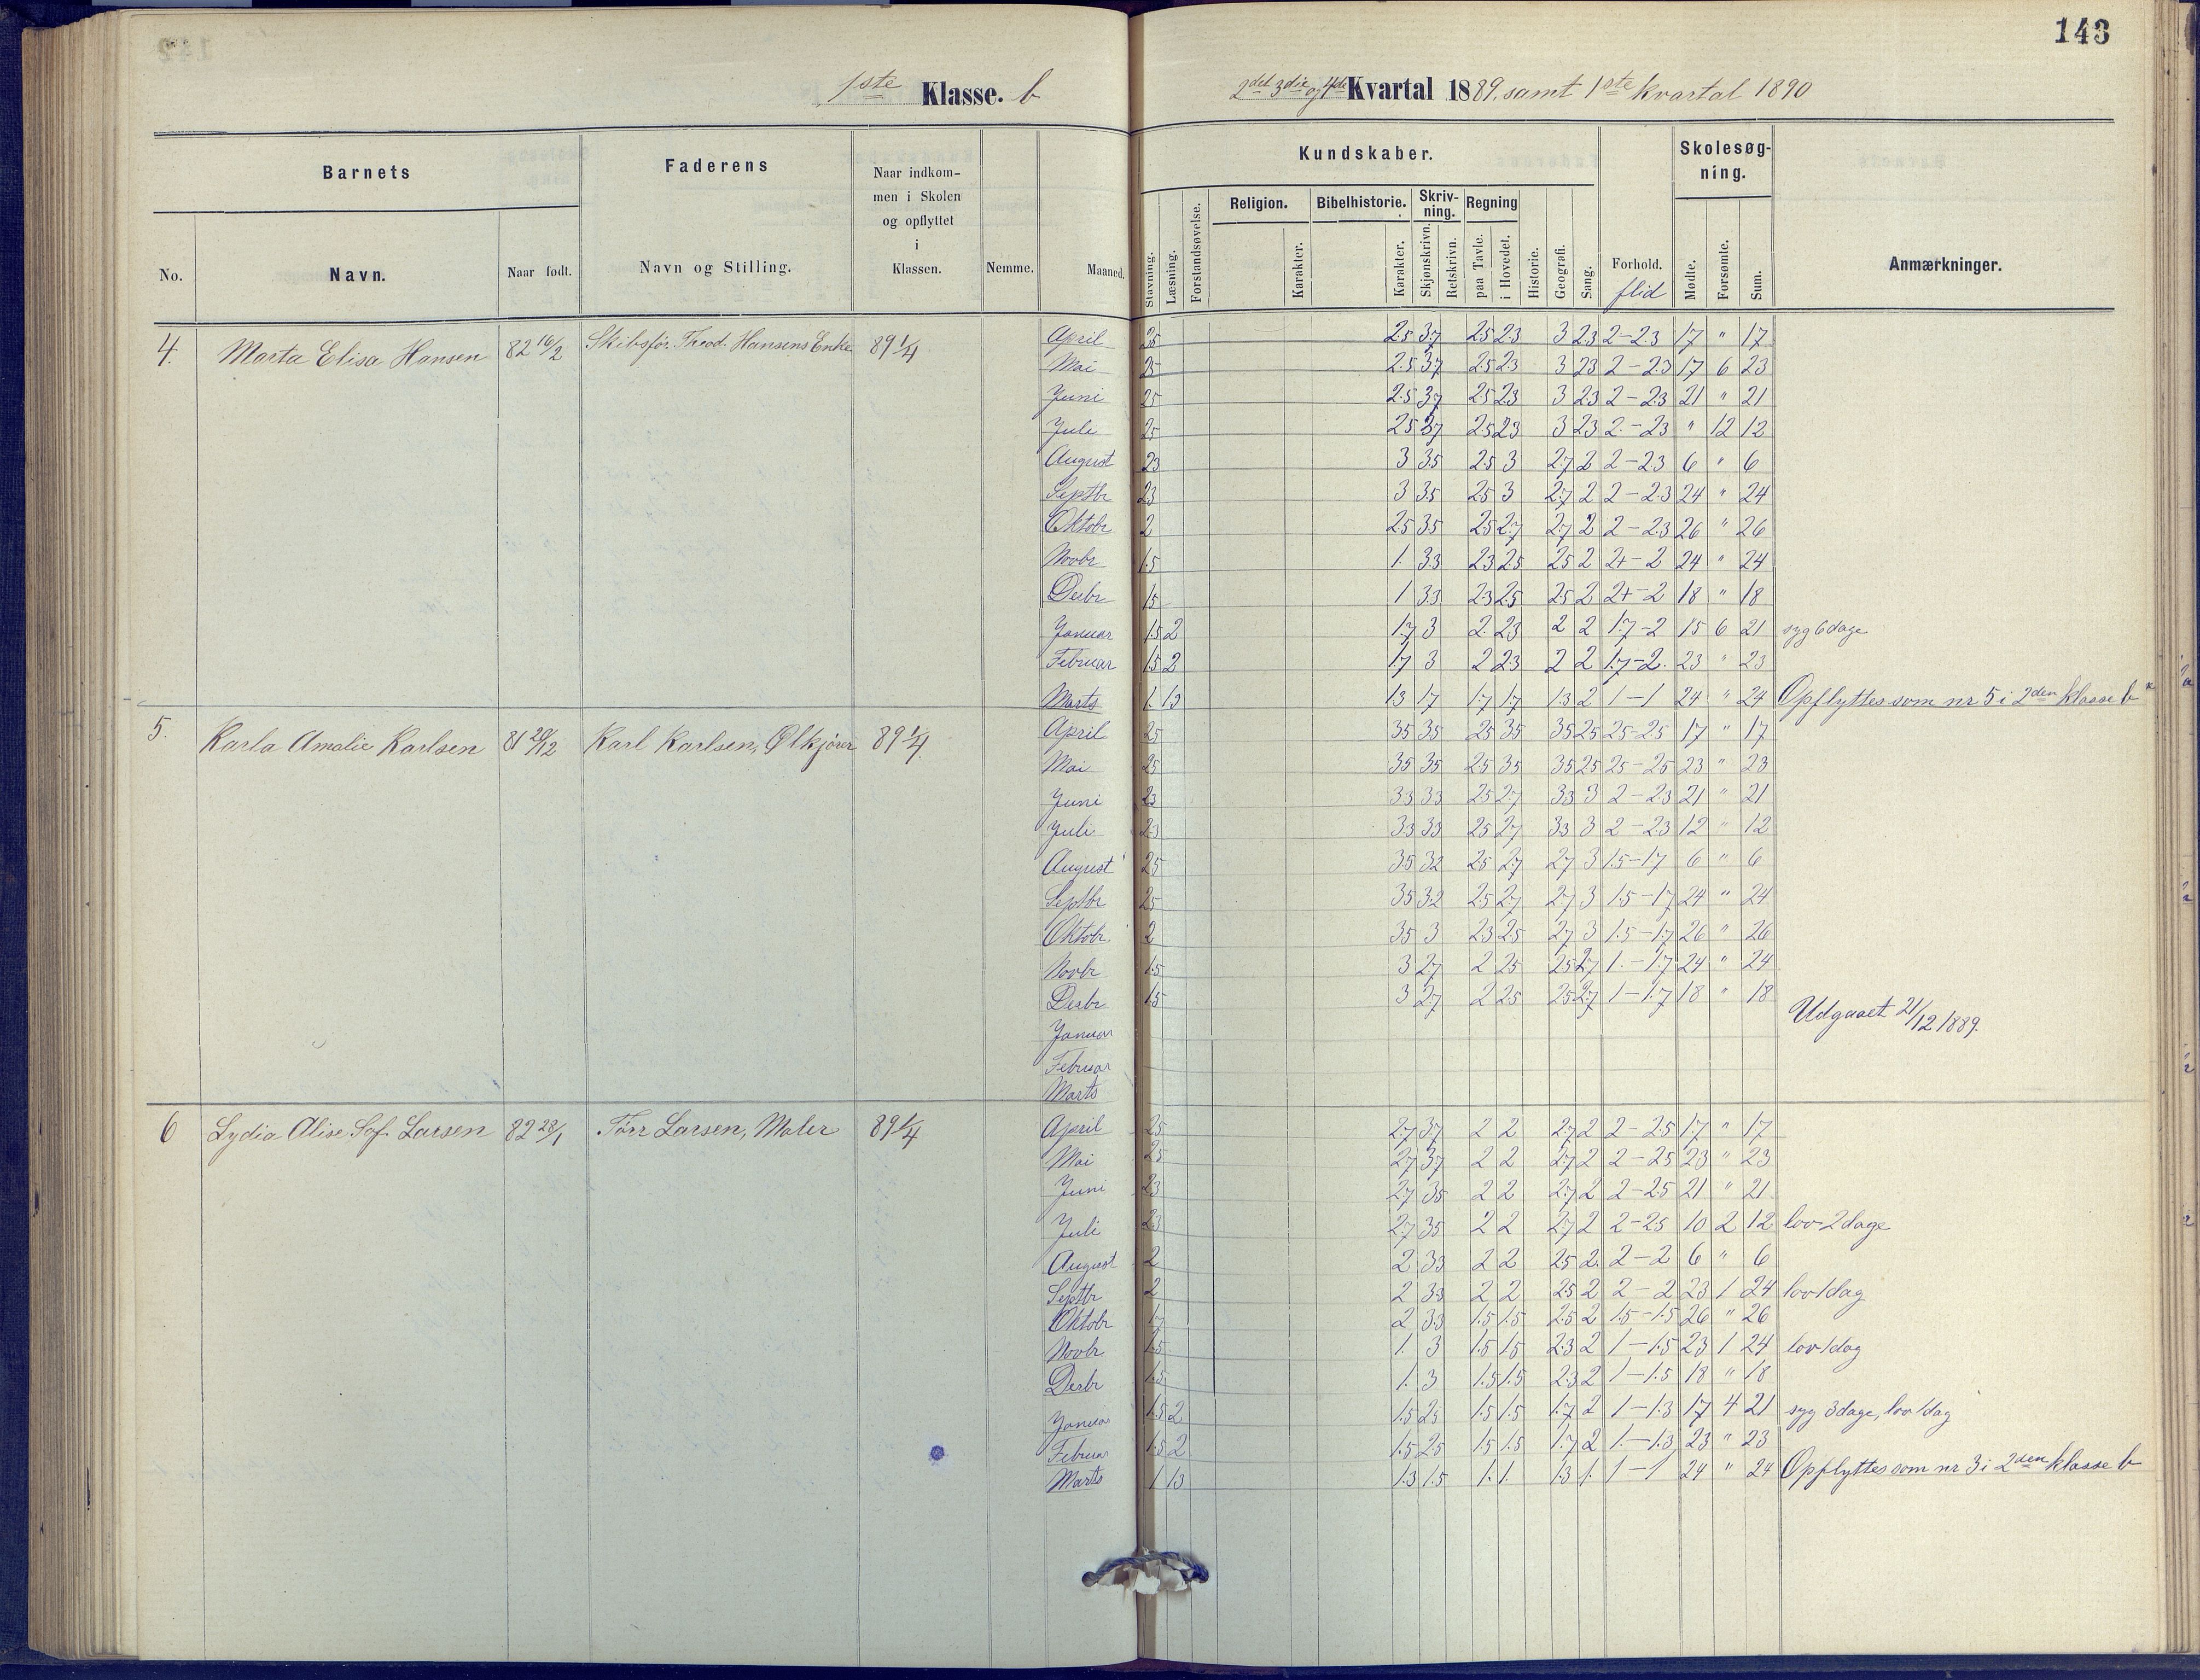 143
1ste Klasse. b
2det 3die og 4de Kvartal 1889. samt 1ste kvartal 1890
Barnets
Faderens
Naar indkom-
men i Skolen
og opflyttet
i
Klassen.
No.
Navn.
Naar født.
Navn og Stilling.
Nemme.
Maaned.
Kundskaber.
Skolesøg-
ning.
Religion.
Bibelhistorie.
Skriv-
ning.
Regning
Stavning.
Læsning.
Forstandsøvelse.
Karakter.
Karakter.
Skjønskrivn.
Retskrivn.
paa Tavle.
i Hovedet.
Historie.
Geografi.
Sang.
Forhold.
flid
Mødte.
Forsømte.
Sum.
Anmærkninger.
4. Marta Elisa Hansen 82 16/2 Skibsfør. Theod. Hansens Enke 89 1/4
April 25 25 37 25 23 3 23 2-23 17 " 17
Mai 25 25 37 25 23 3 23 2-23 17 6 23
Juni 25 25 37 25 23 3 23 2-23 21 " 21
Juli 25 25 37 25 23 3 23 2-23 " 12 12
August 23 3 35 25 3 27 2 2-23 6 " 6
Septbr 23 3 35 25 3 27 2 2-23 24 " 24
Oktobr 2 25 35 25 27 27 2 2-23 26 " 26
Novbr 1.5 1. 33 23 25 25 2 2+-2 24 " 24
Desbr 15 1 33 23 25 25 2 2+-2 18 " 18
Januar 1.5 2 17 3 2 23 2 2 17-2 15 6 21 syg 6 dage
Februar 15 2 17 3 2 23 2 2 17-2 23 " 23
Marts 1. 13 13 17 17 17 13 2 1-1 24 " 24 Opflyttes som nr 5 i 2den klasse b
5. Karla Amalie Karlsen 81 20/12 Karl Karlsen, Ølkjører 89 1/4
April 25 35 35 25 35 35 25 25-25 17 " 17
Mai 25 35 35 25 35 35 25 25-25 23 " 23
Juni 23 33 33 25 27 33 3 2-23 21 " 21
Juli 23 33 33 25 27 33 3 2-23 12 " 12
August 25 35 32 25 27 27 3 15-17 6 " 6
Septbr 25 35 32 25 27 27 3 1.5-17 24 " 24
Oktobr 2 35 3 23 25 27 3 1.5-17 26 " 26
Novbr 1.5 3 27 2 25 25 27 1.-1.7 24 " 24
Desbr 15 3 27 2 25 25 27 1-1.7 18 " 18
Udgaaet 21/12 1889.
Januar
Februar
Marts
6 Lydia Alise Sof. Larsen 82 28/1 Tørr Larsen, Maler 89 1/4
April 25 27 37 2 2 27 2 2-25 17 " 17
Mai 25 27 37 2 2 27 2 2-25 23 " 23
Juni 23 27 35 2 2 27 2 2-25 21 " 21
Juli 23 27 35 2 2 27 2 2-25 10 2 12 lov 2 dage
August 2 2 33 2 2 25 2 2-2 6 " 6
Septbr 2 2 33 2 2 25 2 2-2 23 1 24 lov 1 dag
Oktobr 17 2 33 1.5 1.5 25 2 15-1.5 26 " 26
Novbr 1.5 1. 3 1.5 15 23 2 1-1.5 23 1 24 lov 1 dag
Desbr 1.5 1. 3 1.5 1.5 23 2 1-1.5 18 " 18
Januar 1.5 2 1.5 25 1.5 1.5 1.7 2 1-1.3 17 4 21 syg 3 dage, lov 1 dag
Februar 1.5 2 1.5 25 15 1.5 1.7 2 1.-1.3 23 " 23
Marts 1 13 1.3 1.5 1. 1. 13 1. 1-1 24 " 24 Opflyttes som nr 3 i 2den klasse b